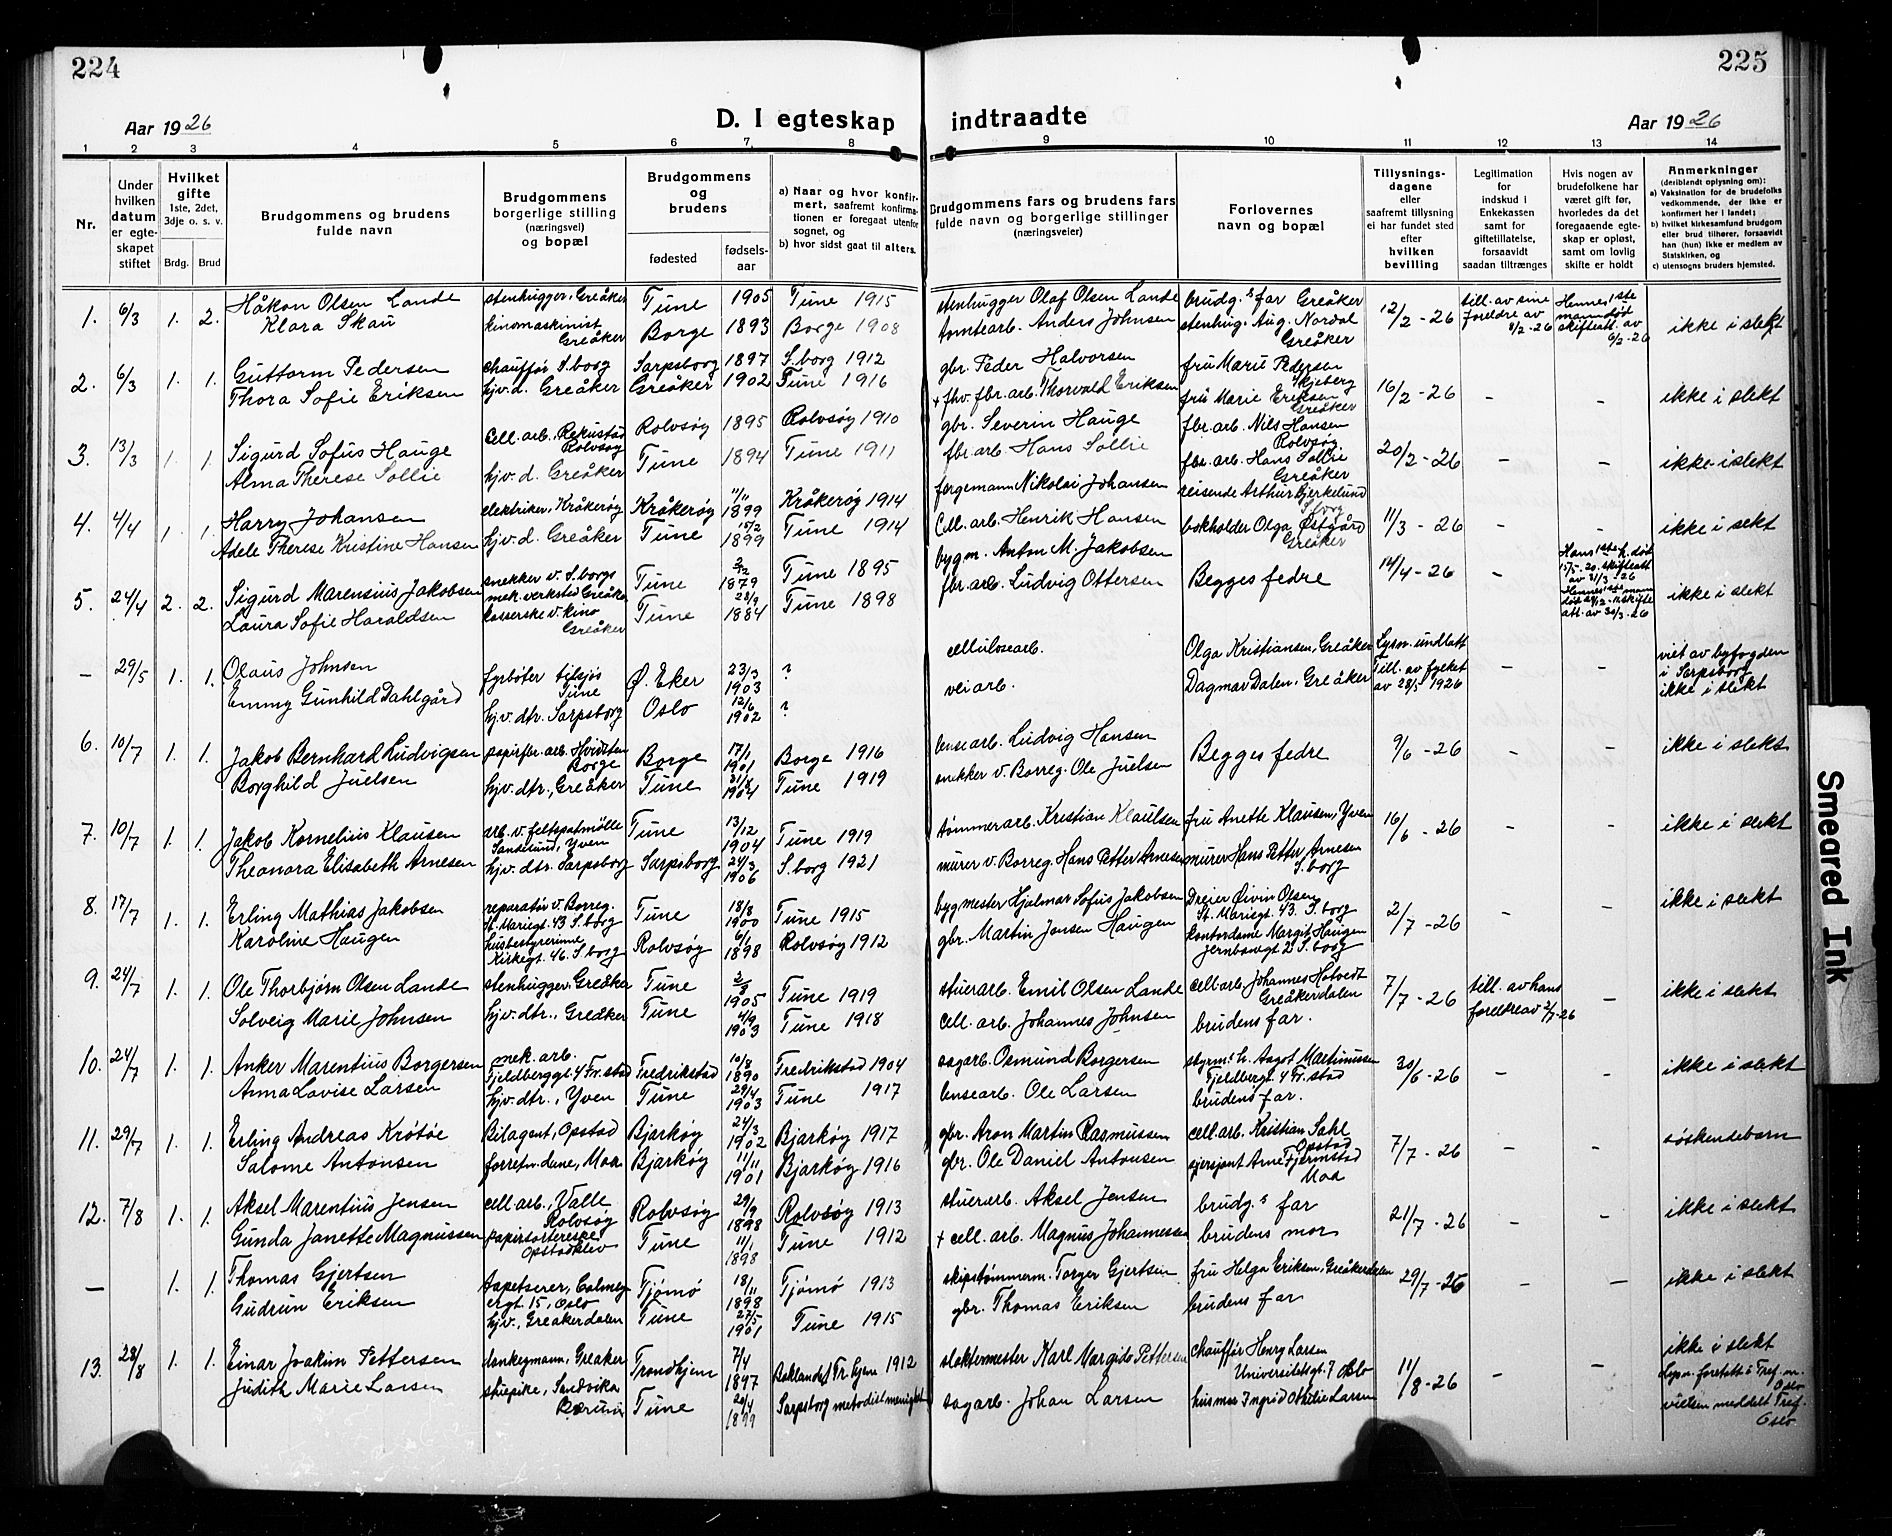 224
225
Aar 1926
D. I egteskap indtraadte
Aar 1926
1 2 3 4 5 6 7 8 9 10 11 12 13 14
Nr.
Under hvilken datum er egteskapet stiftet
Hvilket gifte 1ste, 2det, 3dje o. s. v.
Brdg. Brud
Brudgommens og brudens fulde navn
Brudgommens borgerlige stilling (næringsvei) og bopæl
Brudgommens og brudens
fødested
fødselsaar
a) Naar og hvor konfirmert, saafremt konfirmationen er foregaat utenfor sognet, og
b) hvor sidst gaat til alters.
Brudgommens fars og brudens fars fulde navn og borgerlige stillinger (næringsveier)
Forlovernes navn og bopæl
Tillysningsdagene eller saafremt tillysning ei har fundet sted efter hvilken bevilling
Legitimation for indskud i Enkekassen samt for giftetillatelse, forsaavidt saadan tiltrænges
Hvis nogen av brudefolkene har været gift før, hvorledes da det foregaaende egteskap er opløst, samt om lovlig skifte er holdt
Anmerkninger (deriblandt oplysning om):
a) Vaksination for de brudefolks vedkommende, der ikke er konfirmert her i landet;
b) hvilket kirkesamfund brudgom eller brud tilhører, forsaavidt han (hun) ikke er medlem av Statskirken, og
c) utensogns bruders hjemsted.
1. 6/3 1. 2. Håkon Olsen Lande stenhugger, Greåker Tune 1905 Tune 1915 stenhugger Olaf Olsen Lande brudg.s far Greåker 12/2 - 26 till. av sine foreldre av 8/2 - 26 Hennes 1ste mann død skifteatt. av 6/2 - 26 ikke i slekt
Klara Skau kinomaskinist Greåker Borge 1893 Borge 1908 Anders Johnsen stenhug. Aug. Nordal Greåker
2. 6/3 1. 1. Guttorm Pedersen chauffør S.borg Sarpsborg 1897 S.borg 1912 gbr. Peder Halvorsen fru Marie Pedersen Skjeberg 16/2 - 26 - - ikke i slekt
Thora Sofie Eriksen hjv. d. Greåker Greåker 1902 Tune 1916 + fhv. fbr. arb. Thorvald Eriksen fru Marie Eriksen Greåker
3. 13/3 1. 1. Sigurd Sofus Hauge cell. arb. Rekustad Rolvsøy Rolvsøy 1895 Rolvsøy 1910 gbr. Severin Hauge fbr. arb. Nils Hansen Rolvsøy 20/2 - 26 - - ikke i slekt
Alma Therese Sollie hjv. d. Greåker Tune 1894 Tune 1911 fbr. arb. Hans Sollie fbr. arb. Hans Sollie Greåker
4. 4/4 1. 1. Harry Johansen elektriker, Kråkerøy Kråkerøy 11/11 1899 Kråkerøy 1914 fergemann Nikolai Johansen reisende Arthur Bjerkelund S.borg 11/3 - 26 - - ikke i sekt
Adele Therese Kristine Hansen hjv. d. Greåker Tune 15/2 1899 Tune 1914 Cell. arb. Henrik Hansen bokholder Olga Østgård Greåker
5. 24/4 2. 2. Sigurd Marensius Jakobsen snekker v. S.borgs mek. verksted Greåker Tune 2/12 1879 Tune 1895 bygm. Anton M. Jakobsen Begges fedre 14/4 - 26 - Hans 1ste h. død 15/5-20. skifteatt av 31/3 - 26 ikke i slekt
Laura Sofie Haraldsen kasserske v. kino Greåker Tune 28/9 1884 Tune 1898 fbr. arb. Ludvig Ottersen Hennes 1ste mann skifteatt. av 30/3 - 26
- 29/5 1. 1. Olaus Johnsen fyrbøter Tune Ø. Eker 23/3 1903 ? cellulosearb. Olga Kristiansen, Greåker Lysn. undlatt Till. av fylket av 28/5 1926 - - viet av byfogden i Sarpsborg ikke i slekt
Emmy Gunhild Dahlgård hjv. dtr. Sarpsborg Oslo 12/6 1902 ? vei arb. Dagmar Dalen, Greåker
6. 10/7 1. 1. Jakob Bernhard Ludvigsen papirfbr. arb. Hvidsten Borge Borge 17/1 1901 Borge 1916 lensearb. Ludvig Hansen Begges fedre 9/6 - 26 - - ikke i slekt
Borghild Juelsen hjv. dtr., Greåker Tune 1904 Tune 1919 snekker v. Borreg. Ole Juelsen
7. 10/7 1. 1. Jakob Kornelius Klausen arb. v. feltspatmølle Sandesund, Yven Tune 13/12 1904 Tune 1919 tømmerarb. Kristian Klaulsen fru Anette Klausen, Yven 16/6 - 26 - - ikke i slekt
Theonora Elisabeth Arnesen hjv. dtr. Sarpsborg Sarpsborg 24/3 1906 S.borg 1921 murer v. Borreg. Hans Petter Arnesen murer Hans Petter Arnesen S.borg
8. 17/7 1. 1. Erling Mathias Jakobsen reparatør v. Borreg. St. Mariegt. 43 S.borg Tune 18/8 1900 Tune 1915 bygmester Hjalmar Sofus Jakobsen Dreier Øivin Olsen St. Mariegt. 43. S.borg 2/7 - 26 - - ikke i slekt
Karoline Haugen husbestyrerinne Kirkegt. 46. S.borg Rolvsøy 6/1 1898 Rolvsøy 1912 gbr. Martin Jensen Haugen kontordame Margit Haugen Jernbanegt 2 S.borg
9. 24/7 1. 1. Ole Thorbjørn Olsen Lande stenhugger, Greåker Tune 2/3 1905 Tune 1919 stuerarb. Emil Olsen Lande cell. arb. Johannes Hotvedt Greåkerdalen 7/7 - 26 till. av hans foreldre av 2/7-26 - ikke i slekt
Solveig Marie Johnsen hjv. dtr., Greåker Tune 4/9 1903 Tune 1918 cell. arb. Johannes Johnsen brudens far.
10. 24/7 1. 1. Anker Marentius Borgersen mek. arb. Fjeldberggt. 4 Fr.stad Fredrikstad 10/8 1890 Fredrikstad 1904 sagarb. Osmund Borgersen styrm.s h. Aagot Martinussen Fjeldbergt. 4 Fr.stad 30/6 - 26 - - ikke i slekt
Anna Lovise Larsen hjv. dtr., Yven Tune 29/4 1903 Tune 1917 lensearb. Ole Larsen brudens far.
11. 29/7 1. 1. Erling Andreas Krøtøe Bilagent, Opstad Bjarkøy 24/3 1902 Bjarkøy 1917 gbr. Aron Martin Rasmussen cell. arb. Kristian Sahl Opstad 7/7 - 26 - - søskendebarn
Salome Antonsen forretn. dene, Moa Bjarkøy 11/11 1901 Bjarkøy 1916 gbr. Ole Daniel Antonsen sersjant Arne Fjermstad Moa
12. 7/8 1. 1. Aksel Marentius Jensen cell. arb., Valle Rolvsøy Rolvsøy 29/9 1898 Rolvsøy 1913 stuerarb. Aksel Jensen brudg.s far 21/7 - 26 - - ikke i slekt
Gunda Janette Magnussen papirsorterske Opstadklev Tune 11/1 1898 Tune 1912 + cell. arb. Magnus Johannessen brudens mor
- 1. 1. Thomas Gjertsen tapetserer, Calmeyergt. 15, Oslo Tjømø 18/11 1898 Tjømø 1913 skipstømmerm. Torger Gjertsen fru Helga Eriksen, Greåkerdalen 29/7 - 26 - - ikke i slekt
Gudrun Eriksen hjv., Greåkerdalen Tune 27/5 1901 Tune 1915 gbr. Thomas Eriksen brudens far
13. 28/8 1. 1. Einar Joakim Pettersen donkeymann, Greåker Trondhjem 7/4 1897 Baklandet Tr.hjem 1912 slaktermester Karl Margido Pettersen chauffør Henry Larsen Universitetsgt. 7 Oslo 11/8 - 26 - - ikke i slekt
Judith Marie Larsen stuepike, Sandvika Bærum Tune 24/4 1899 Sarpsborg metodistmenighet sagarb. Johan Larsen husmor Ingrid Othilie Larsen Lysn. foretatt i Tref. m. Oslo vielsen meddelt Tref. Oslo.
Smeared Ink